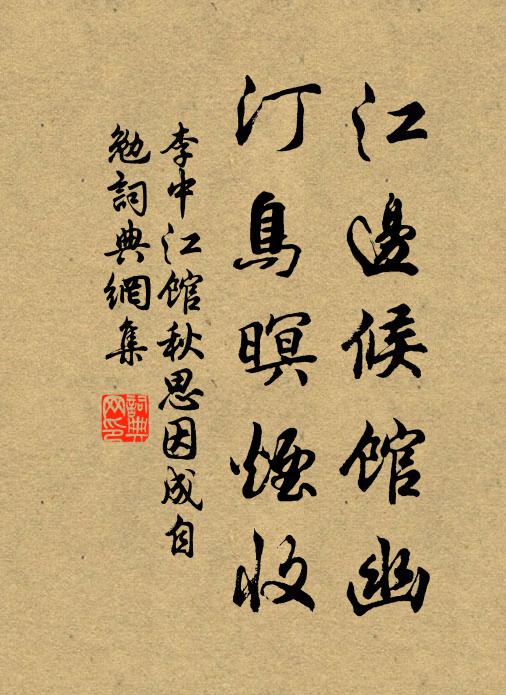 江邊候館幽
汀鳥暝煙收
李中江館秋思因成自
勉詞典網集
詞典網印